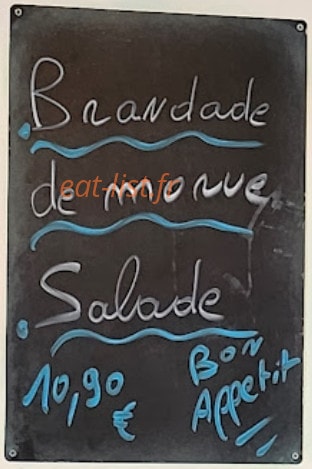 Brandade
de morue
eat-list.fr
Salade
10,90
€
Bon
Appetit